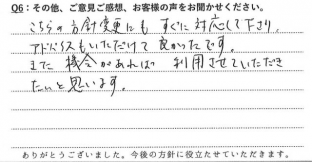 Q6：その他、ご意見ご感想、お客様の声をお聞かせください。
こちらの方針変更にも すぐに対応して下さり、
アドバイスもいただけて良かったです。
また機会があれば 利用させていただき
たいと思います。
ありがとうございました。今後の方針に役立たせていただきます。